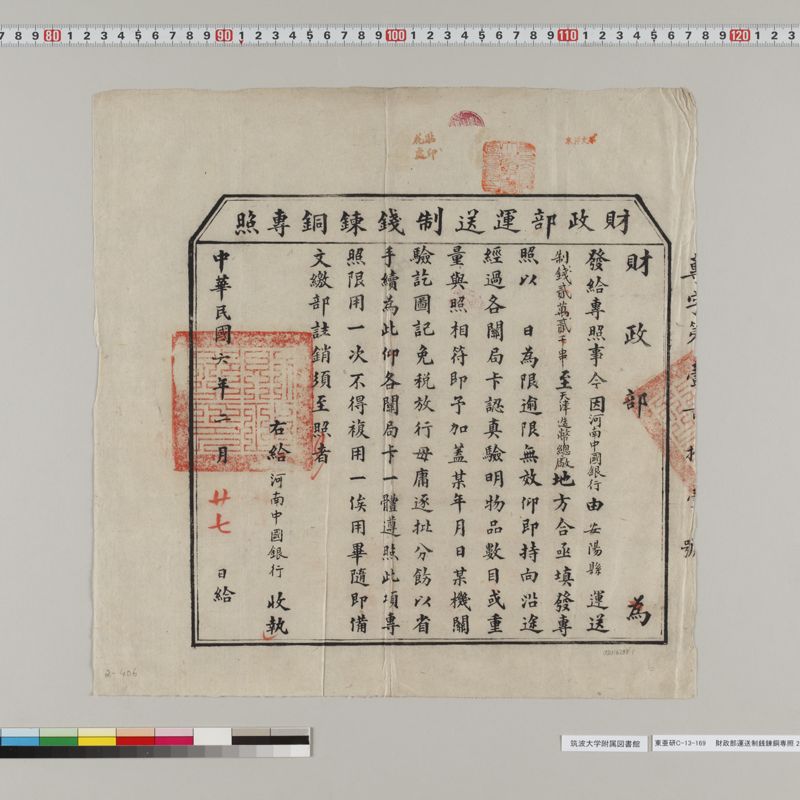 財政部運送制錢鍊銅專照
財政部為
發給專照事今因河南中國銀行由安陽縣運送
制錢貳萬貳千串至天津造幣總廠地方合亟填發專
照以　日為限逾限無效仰即持向沿途
經過各關局卡認真驗明物品數目或重
量與照相符即予加蓋某年月日某機關
驗訖圖記免稅放行毋庸逐批分飭以省
手續為此仰各關局卡一體遵照此項專
照限用一次不得複用一俟用畢隨即備
文繳部註銷須至照者
右給河南中國銀行收執
中華民國六年二月廿七日給
號
2-406
筑波大学附属図書館
東亜研C-13-169　財政部運送制銭鍊銅専照 2